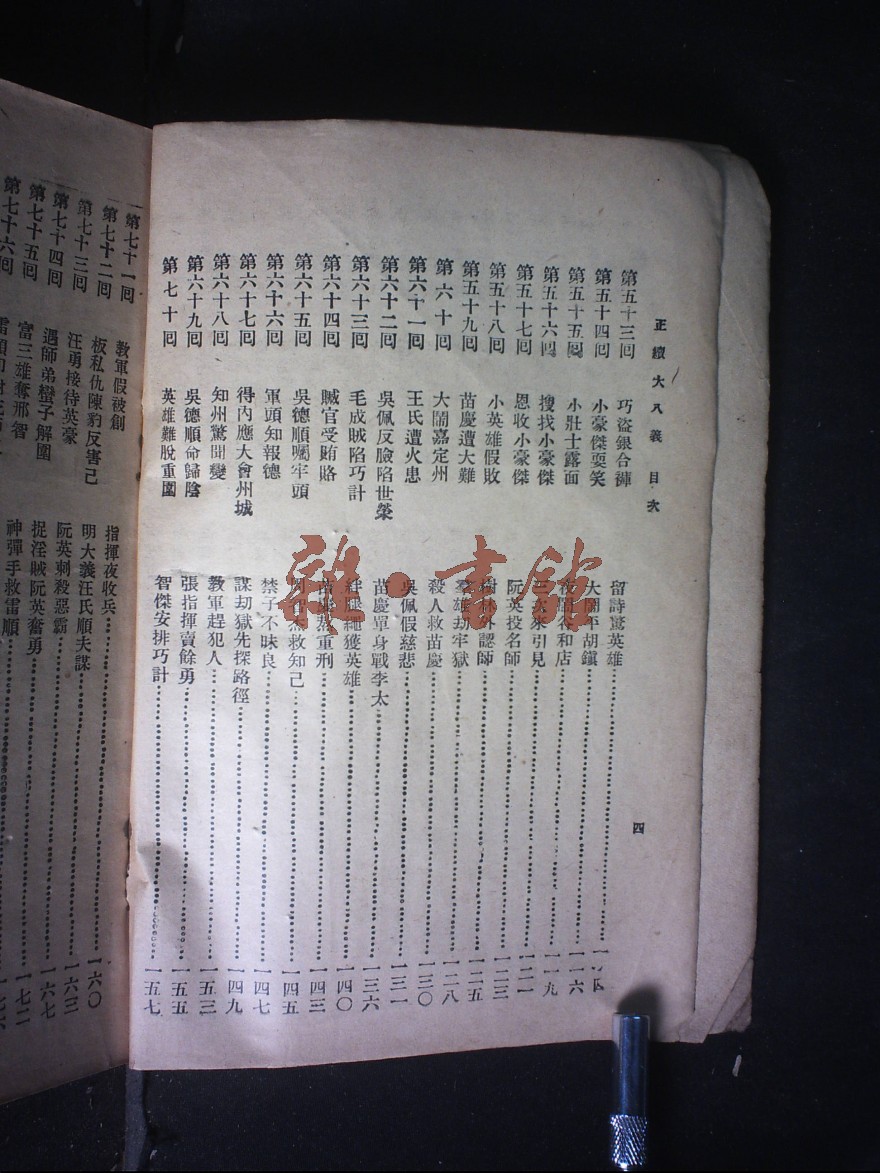 正續大八義 目次
四
第五十三回 巧盜銀合褲 留詩驚英雄 一一四
第五十四回 小豪傑耍笑 大鬧平胡鎮 一一六
第五十五回 小壯士露面 谷和店 一一九
第五十六回 搜找小豪傑 次來引見 一二一
第五十七回 恩收小豪傑 阮英投名師 一二三
第五十八回 小英雄假敗 樹林外認師 一二五
第五十九回 苗慶遭大難 羣雄劫牢獄 一二八
第六十回 大鬧嘉定州 殺人救苗慶 一三〇
第六十一回 王氏遭火患 吳佩假慈悲 一三一
第六十二回 吳佩反臉陷世榮 苗慶單身戰李太 一三六
第六十三回 毛成賊陷巧計 絆腿繩獲英雄 一四〇
第六十四回 贓官受賄賂 苗慶熬重刑 一四三
第六十五回 吳德順囑牢頭 杰救知己 一四五
第六十六回 軍頭知報德 禁子不昧良 一四七
第六十七回 得內應大會州城 謀劫獄先探路徑 一四九
第六十八回 知州驚聞變 教軍趕犯人 一五三
第六十九回 吳德順命歸陰 張指揮賣餘勇 一五五
第七十回 英雄難脫重圍 智傑安排巧計 一五七
第七十一回 教軍假被創 指揮夜收兵 一六〇
第七十二回 板私仇陳豹反害己 明大義汪氏順夫謀 一六三
第七十三回 汪勇接待英豪 阮英刺殺惡霸 一六七
第七十四回 遇師弟蠻子解圍 捉淫賊阮英奮勇 一七二
第七十五回 富三雄奪邢智 神彈手救雷順
第七十六回
雜·書館